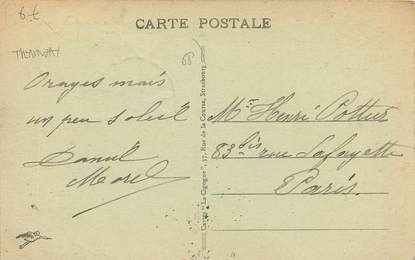 6€
TRAMWAY
CARTE POSTALE
68
Orages mais
un peu soleil
Daniel
Morel
Cartes "La Cigogne", 17, Rue de la Course, Strasbourg
Mr Henri Pottier
83bis rue Lafayette
Paris.